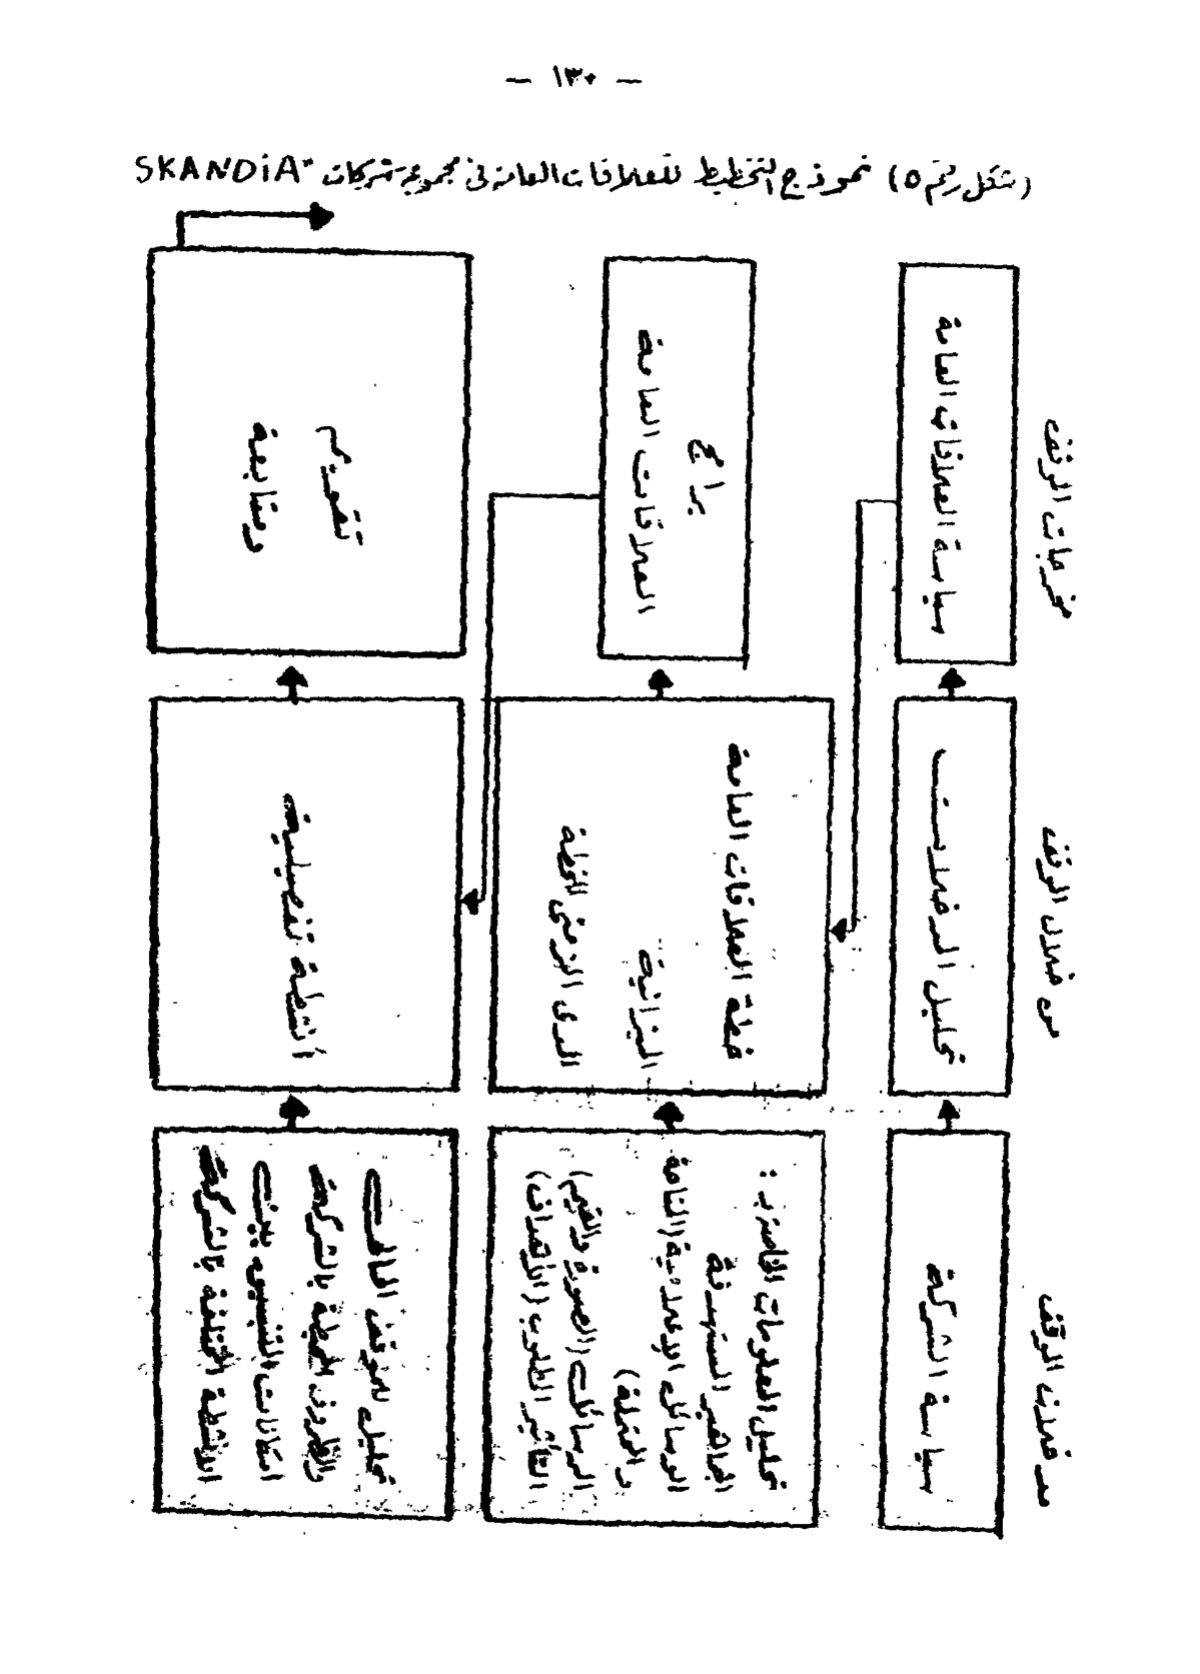 — ١٣٠ —
(شكل رقم ٥) نموذج التخطيط للعلاقات العامة في مجموعة شركات SKANDiA
مدخلات الموقف
من خلال الموقف
مخرجات الموقف
سياسة الشركة
تحليل
سياسة العلاقات العامة
تحليل المعلومات الخاصة بـ :
الجماهير المستهدفة
الوسائل الإعلامية (المتاحة
والمحتملة)
الرسائل (الصورة والقيم)
التأثير المطلوب (الأهداف)
خطة العلاقات العامة
الميزانية
المدى الزمني للخطة
برامج
العلاقات العامة
تحليل للموقف
والظروف المحيطة بالشركة
امكانات التنسيق بين
الأنشطة المختلفة بالشركة
أنشطة تفصيلية
تقويم
ومتابعة